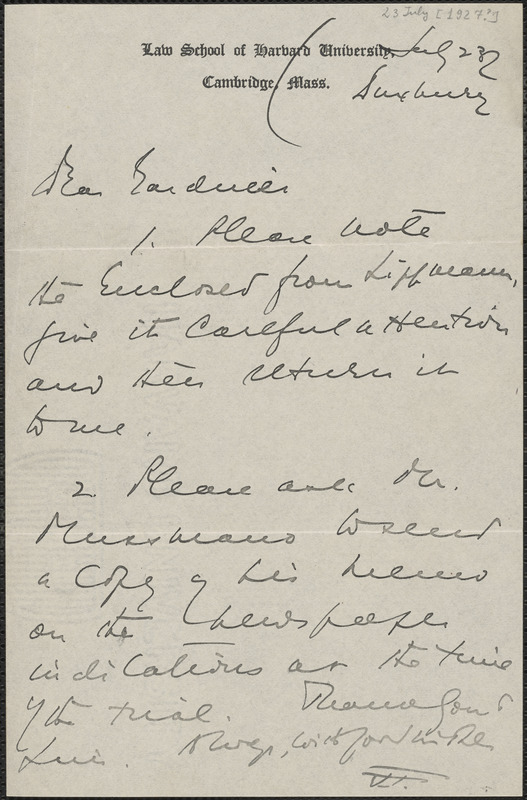 23 July [1927?]
Law School of Harvard University,
Cambridge, Mass.
July 23,
Duxbury
Dear Gardner
1. Please note
the enclosed from Lippmann,
give it careful attention
and then return it
to me.
2. Please ask Mr.
Musmanno to send
a copy of his memo
on the newspaper
indications at the time
of the trial.
this. Always, with good wishes
FF.